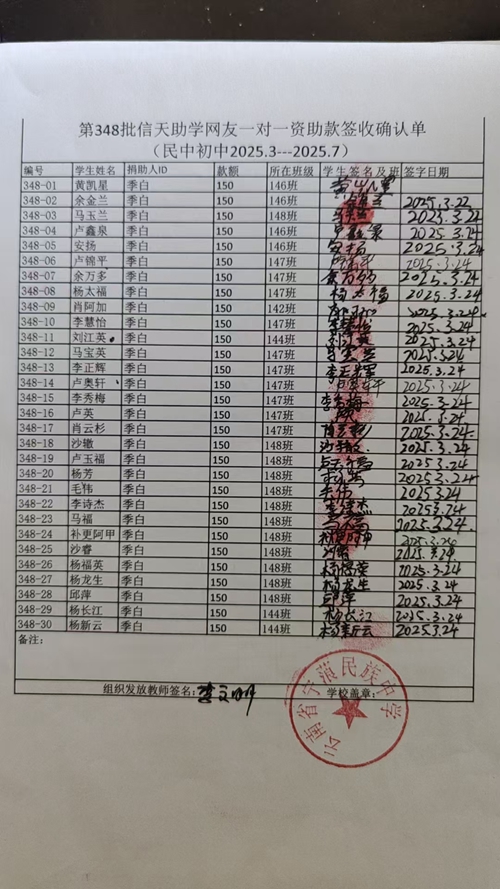 第348批信天助学网友一对一资助款签收确认单
（民中初中2025.3---2025.7）
编号 学生姓名 捐助人ID 款额 所在班级 学生签名及班 签字日期
348-01 黄凯星 季白 150 146班
348-02 余金兰 季白 150 146班 2025.3.22
348-03 马玉兰 季白 150 148班 2023.3.24
348-04 卢鑫泉 季白 150 146班 2025.3.24
348-05 安扬 季白 150 146班 安扬 2025.3.24
348-06 卢锦平 季白 150 147班 2025.3.24
348-07 余万多 季白 150 147班 余万多 2025.3.24
348-08 杨太福 季白 150 147班 杨太福 2025.3.24
348-09 肖阿加 季白 150 142班 2025.3.24
348-10 李慧怡 季白 150 147班 李慧怡 2025.3.24
348-11 刘江英 季白 150 144班 刘江英 2025.3.24
348-12 马宝英 季白 150 147班 2025.3.24
348-13 李正辉 季白 150 147班 李正辉 2025.3.24
348-14 卢奥轩 季白 150 147班 2025.3.24
348-15 李秀梅 季白 150 147班 李秀梅 2025.3.24
348-16 卢英 季白 150 147班 2025.3.24
348-17 肖云杉 季白 150 147班 肖云杉 2025.3.24
348-18 沙辙 季白 150 148班 2025.3.24
348-19 卢玉福 季白 150 148班 2025.3.24
348-20 杨芳 季白 150 148班 2025.3.24
348-21 毛伟 季白 150 148班 毛伟 2025.3.24
348-22 李诗杰 季白 150 148班 李诗杰 2025.3.24
348-23 马福 季白 150 148班 2025.3.24
348-24 补更阿甲 季白 150 148班 2025.3.24
348-25 沙睿 季白 150 148班 沙睿 2025.3.24
348-26 杨福英 季白 150 148班 杨福英 2025.3.24
348-27 杨龙生 季白 150 148班 杨龙生 2025.3.24
348-28 邱萍 季白 150 148班 邱萍 2025.3.24
348-29 杨长江 季白 150 144班 杨长江 2025.3.24
348-30 杨新云 季白 150 144班 杨新云 2025.3.24
备注：
组织发放教师签名：李文明 学校盖章：
云南省宁蒗民族中学